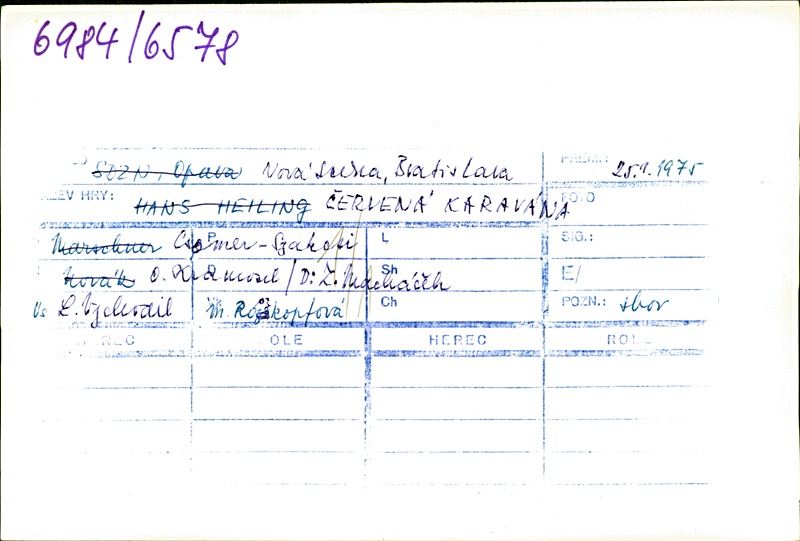 6984/6578
SDZN, Opava Nová scéna, Bratislava PREM.: 25.1.1975
ZEV HRY: HANS HEILING ČERVENÁ KARAVÁNA FOTO
Marschner Csemer-Szakcsi P L SIG.:
Novák O. R Sh E/
/ D: Z. Macháček
Vs L. Vychodil Vk M. Rosskopfová Ch POZN.: sbor
REC OLE HEREC ROL